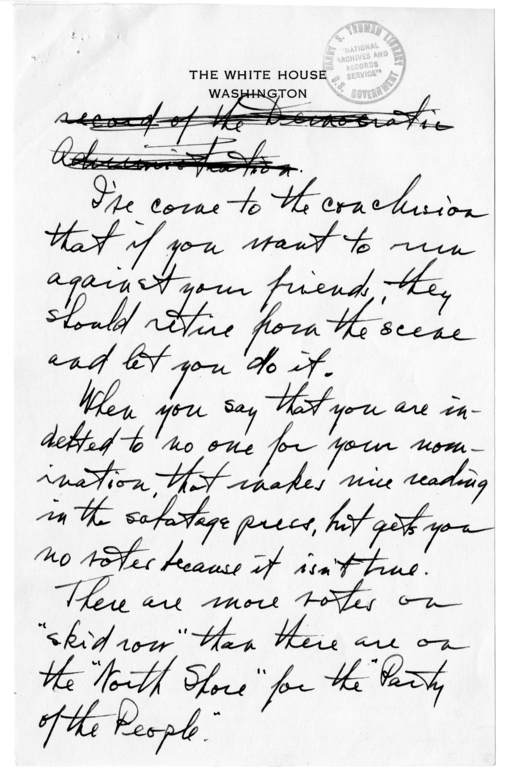 HARRY S. TRUMAN LIBRARY
"NATIONAL
ARCHIVES AND
RECORDS
SERVICE"
U.S. GOVERNMENT
THE WHITE HOUSE
WASHINGTON
record of the Democratic
Administration.
I've come to the conclusion
that if you want to run
against your friends, they
should retire from the scene
and let you do it.
When you say that you are in-
debted to no one for your nom-
ination, that makes nice reading
in the sabotage press, but gets you
no votes because it isn't true.
There are more votes on
"skid row" than there are on
the "North Shore" for the "Party
of the People".